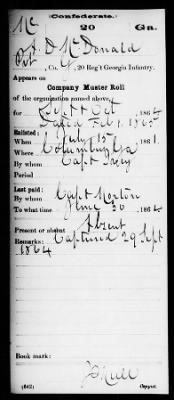 (Confederate.)
Mc 20 Ga.
D McDonald
Pvt, Co. G, 20 Reg't Georgia Infantry.
Appears on
Company Muster Roll
of the organization named above,
for Sept & Oct, 1864
dated Feb 1, 1865
Enlisted:
When July 15, 1861.
Where Columbus Ga
By whom Capt
Period
Last paid:
By whom Capt Morton
To what time June 30, 1864
Present or absent Absent
Remarks: Captured 29 Sept
1864
Book mark:
(642) Copyist.